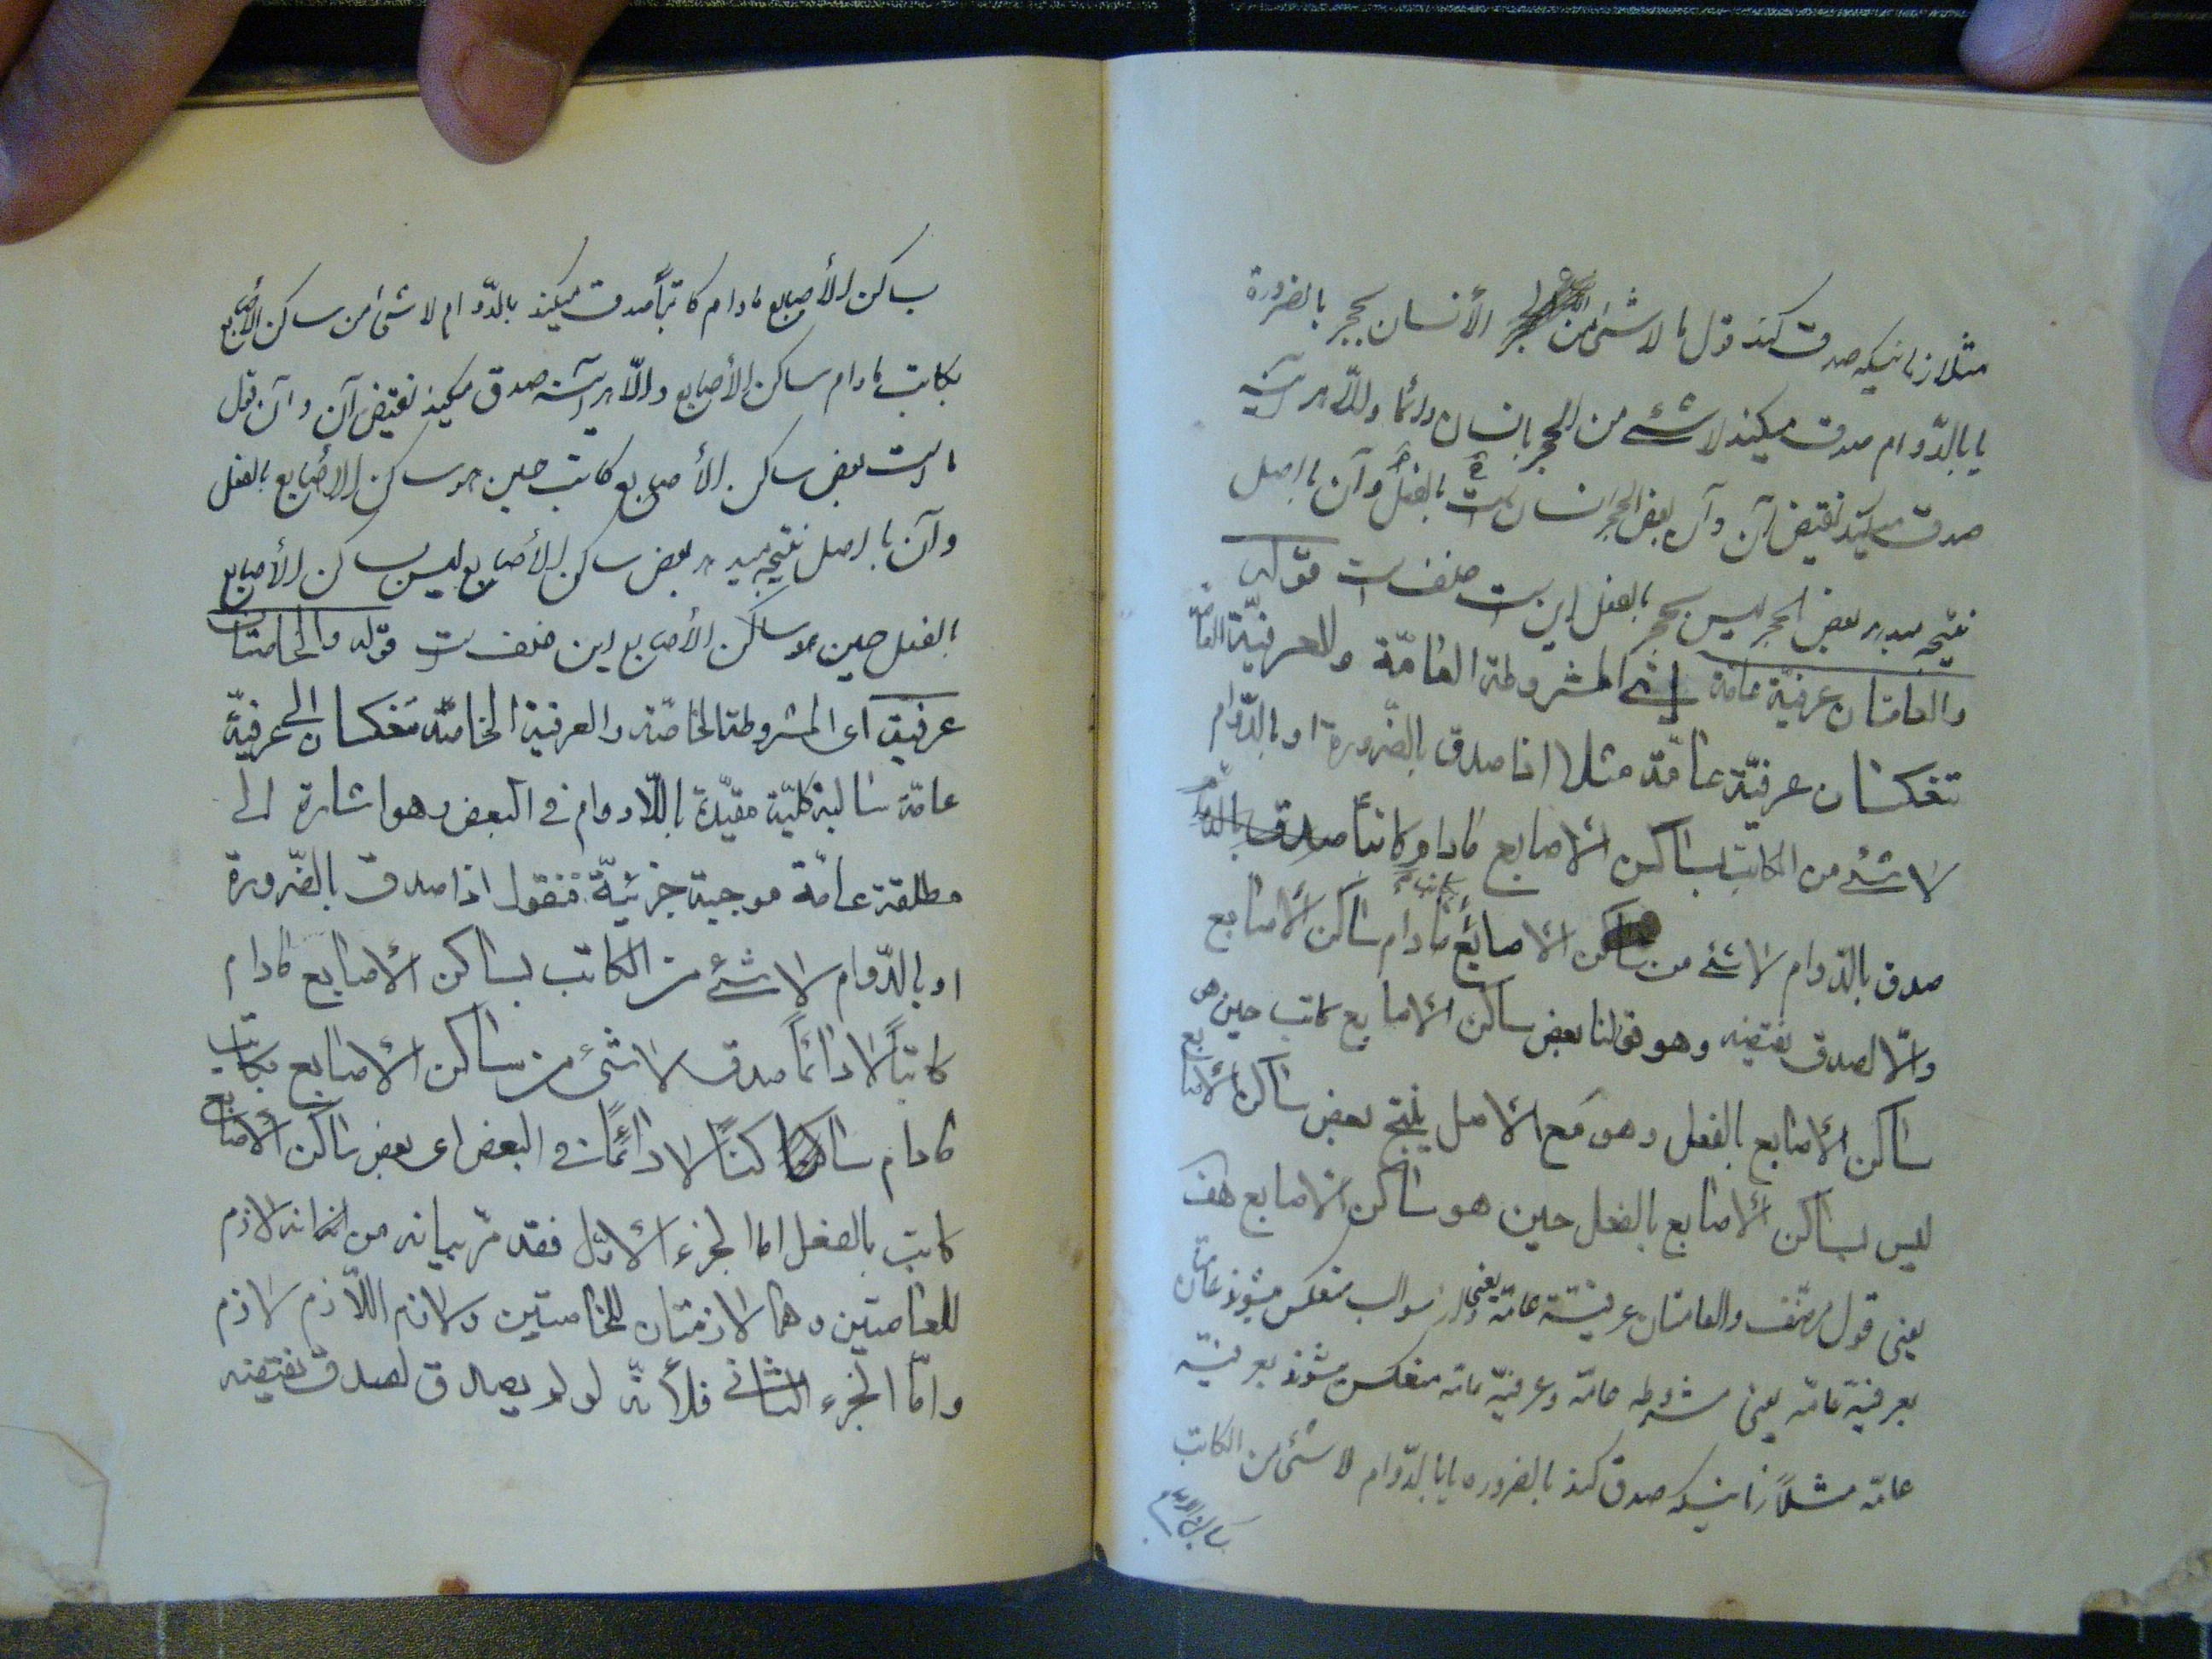 مثلا زمانیکه صدق کند قول ما لا شئ من الأنسان بحجر بالضرورة
یا بالدّوام صدق میکند لا شئ من الحجر بانسان دائما والّا هر آینه
صدق میکند نقیض آن و آن بعض الحجر انسان است بالفعل و آن با اصل
نتیجه میدهد بعض الحجر لیس بحجر بالفعل این است خلف است قوله
والعامتان عرفیّة عامّة ای المشروطة العامّة والعرفیّة العامّة
تنعکسان عرفیّة عامّة مثلا اذا صدق بالضّرورة او بالدّوام
لا شئ من الکاتب بساکن الأصابع مادام کاتبا صدق بالدّوام
صدق بالدّوام لا شئ من ساکن الأصابع بکاتب مادام ساکن الأصابع
والّا لصدق نقیضه وهو قولنا بعض ساکن الأصابع کاتب حین هو
ساکن الأصابع بالفعل وهو مع الأصل ینتج بعض ساکن الأصابع
لیس بساکن الأصابع بالفعل حین هو ساکن الأصابع هف
یعنی قول مصنّف والعامتان عرفیّة عامّة یعنی از سوالب منعکس میشوند عامتان
بعرفیّة عامّه یعنی مشروطه عامّه وعرفیّة عامّه منعکس میشوند بعرفیّه
عامّه مثلاً زمانیکه صدق کند بالضروره یا بالدّوام لا شئ من الکاتب
بساکن الأصابع
بساکن الأصابع مادام کاتباً صدق میکند بالدّوام لا شئ من ساکن الأصابع
بکاتب مادام ساکن الأصابع والّا هر آینه صدق میکند نقیض آن و آن قول
ما است بعض ساکن الأصابع کاتب حین هو ساکن الأصابع بالفعل
وآن با اصل نتیجه میدهد بعض ساکن الأصابع لیس بساکن الأصابع
بالفعل حین هو ساکن الأصابع این خلف است قوله والخاصّتان
عرفیّة ای المشروطة الخاصّة والعرفیة الخاصّة تنعکسان الی عرفیّة
عامّة سالبة کلیّة مقیّدة باللّا دوام فی البعض وهو اشارة الی
مطلقة عامّة موجبة جزئیّة فنقول اذا صدق بالضّرورة
او بالدّوام لا شئ من الکاتب بساکن الأصابع مادام
کاتباً لا دائماً صدق لا شئ من ساکن الأصابع بکاتب
مادام ساکناً لا دائماً فی البعض ای بعض ساکن الأصابع
کاتب بالفعل امّا الجزء الأوّل فقد مرّ بیانه من انه لازم
للعامتین وهما لازمتان للخاصتین ولازم اللّازم لازم
وامّا الجزء الثانی فلأنّه لو لم یصدق لصدق نقیضه